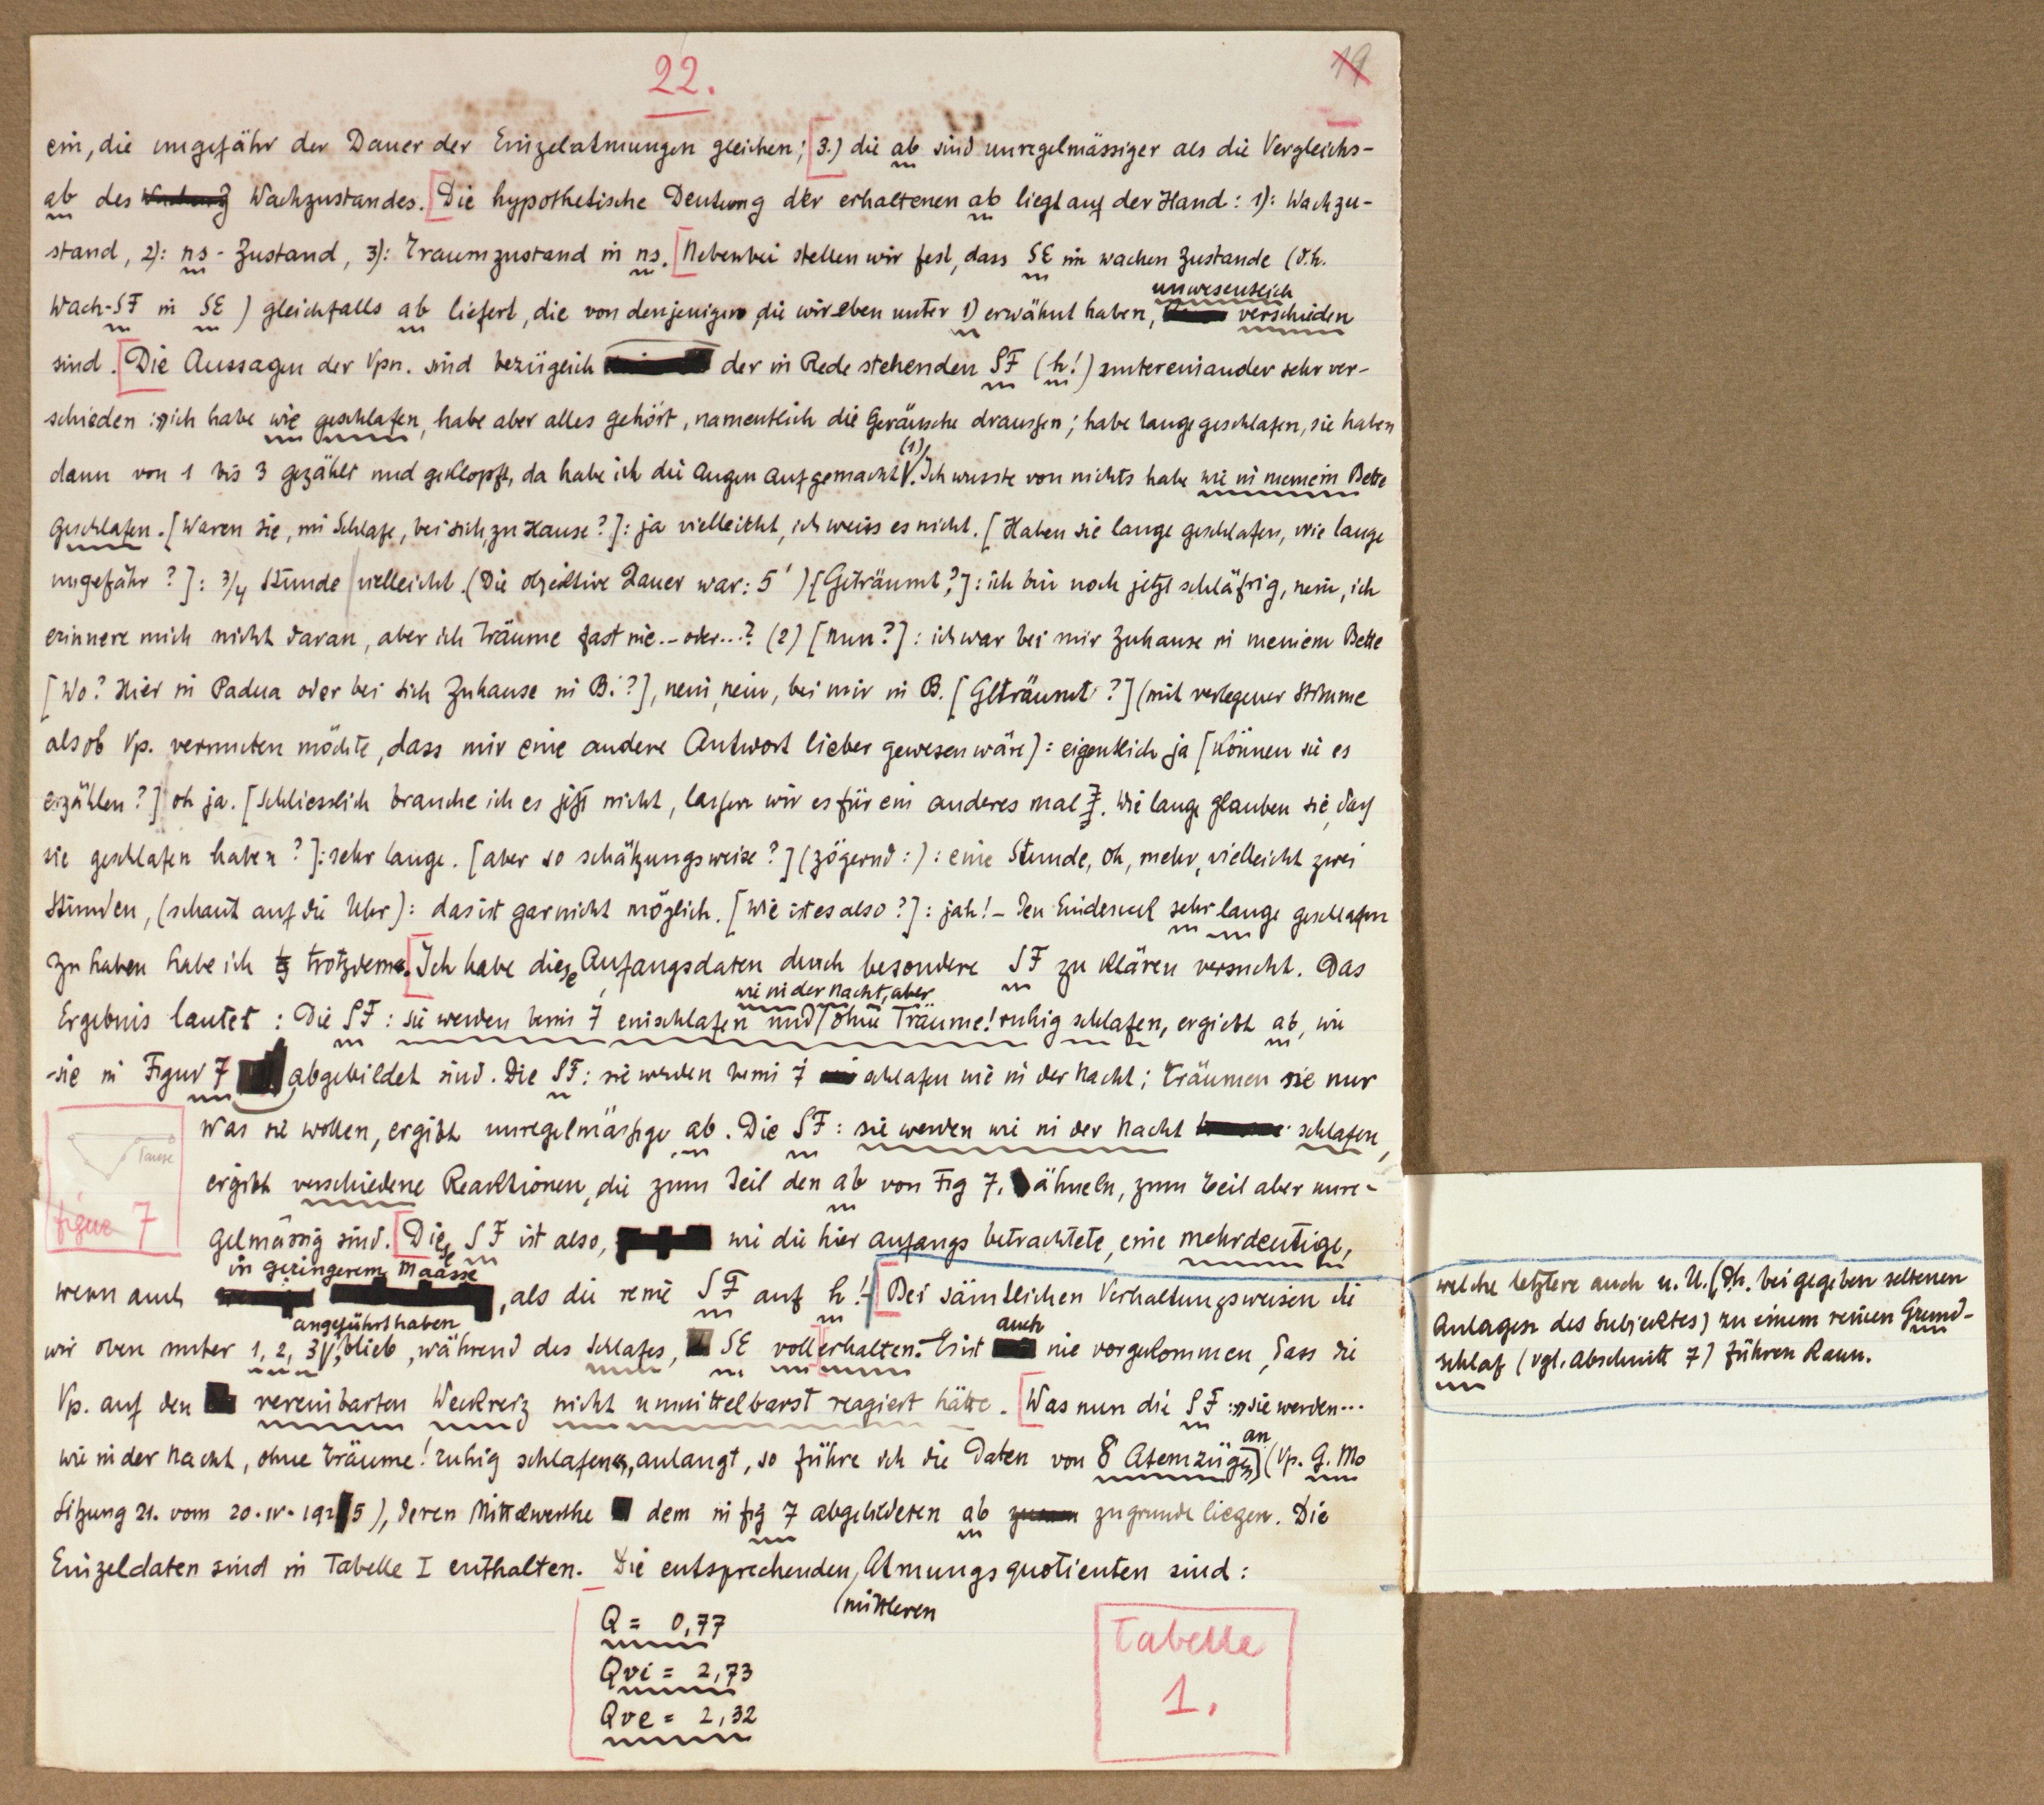 22.
19
ein, die ungefähr der Dauer der Einzelatmungen gleichen; [3.) die ab sind unregelmässiger als die Vergleichs-
ab des Wachzustandes. [Die hypothetische Deutung der erhaltenen ab liegt auf der Hand: 1): Wachzu-
stand, 2): ns-Zustand, 3): Traumzustand in ns. [Nebenbei stellen wir fest, dass SE im wachen Zustande (d.h.
unwesentlich
Wach-SF in SE) gleichfalls ab liefert, die von denjenigen, die wir eben unter 1) erwähnt haben, verschieden
sind. [Die Aussagen der Vpn. sind bezüglich der in Rede stehenden SF (h!) untereinander sehr ver-
schieden: „ich habe wie geschlafen, habe aber alles gehört, namentlich die Geräusche draussen; habe lange geschlafen, sie haben
dann von 1 bis 3 gezählt und geklopft, da habe ich die Augen aufgemacht (1). Ich wusste von nichts habe wie in meinem Bette
geschlafen. [Waren sie, im Schlafe, bei sich, zu Hause?]: ja vielleicht, ich weiss es nicht. [Haben sie lange geschlafen, wie lange
ungefähr?]: 3/4 Stunde vielleicht. (Die objektive Dauer war: 5') [Geträumt?]: ich bin noch jetzt schläfrig, nein, ich
erinnere mich nicht daran, aber ich träume fast nie. – oder...? (2) [Nun?]: ich war bei mir zuhause in meinem Bette
[Wo? Hier in Padua oder bei sich zuhause in B.?], nein, nein, bei mir in B. [Geträumt?] (mit verlegener Stimme
als ob Vp. vermuten möchte, dass mir eine andere Antwort lieber gewesen wäre): eigentlich ja [Können sie es
erzählen?] oh ja. [Schliesslich brauche ich es jetzt nicht, lassen wir es für ein anderes mal. Wie lange glauben sie, dass
sie geschlafen haben?]: sehr lange. [aber so schätzungsweise?] (zögernd:): eine Stunde, oh, mehr, vielleicht zwei
Stunden, (schaut auf die Uhr): das ist gar nicht möglich. [Wie ist es also?]: jah! – Den Eindruck sehr lange geschlafen
zu haben habe ich trotzdem. [Ich habe diese Anfangsdaten durch besondere SF zu klären versucht. Das
wie in der Nacht, aber
Ergebnis lautet: Die SF: sie werden beim 7 einschlafen und ohne Träume! ruhig schlafen, ergiebt ab, wie
sie in Figur 7 abgebildet sind. Die SF: sie werden beim 7 schlafen wie in der Nacht; träumen sie nur
was sie wollen, ergibt unregelmässige ab. Die SF: sie werden wie in der Nacht schlafen,
ergibt verschiedene Reaktionen, die zum Teil den ab von Fig 7. ähneln, zum Teil aber unre-
figur 7
gelmässig sind. [Diese SF ist also, wie die hier anfangs betrachtete, eine mehrdeutige,
in geringerem Maasse
wenn auch, als die reine SF auf h! – [Bei sämtlichen Verhaltungsweisen die
angeführt haben auch
wir oben unter 1, 2, 3, blieb, während des Schlafes, SE voll erhalten. Es ist nie vorgekommen, dass die
Vp. auf den vereinbarten Weckreiz nicht unmittelbarst reagiert hätte. [Was nun die SF: „sie werden...
an
wie in der Nacht, ohne Träume! ruhig schlafen", anlangt, so führe ich die Daten von 8 Atemzügen (Vp. G. Mo
Sitzung 21. vom 20.IV.1925), deren Mittelwerthe dem in fig 7 abgebildeten ab zugrunde liegen. Die
Einzeldaten sind in Tabelle I enthalten. Die entsprechenden, Atmungsquotienten sind:
mittleren
Q = 0,77
Qvi = 2,73
Qve = 2,32
Tabelle
1.
welche letztere auch u. U. (dh. bei gegeben seltenen
Anlagen des Subjektes) zu einem reinen Grund-
schlaf (vgl. Abschnitt 7) führen kann.